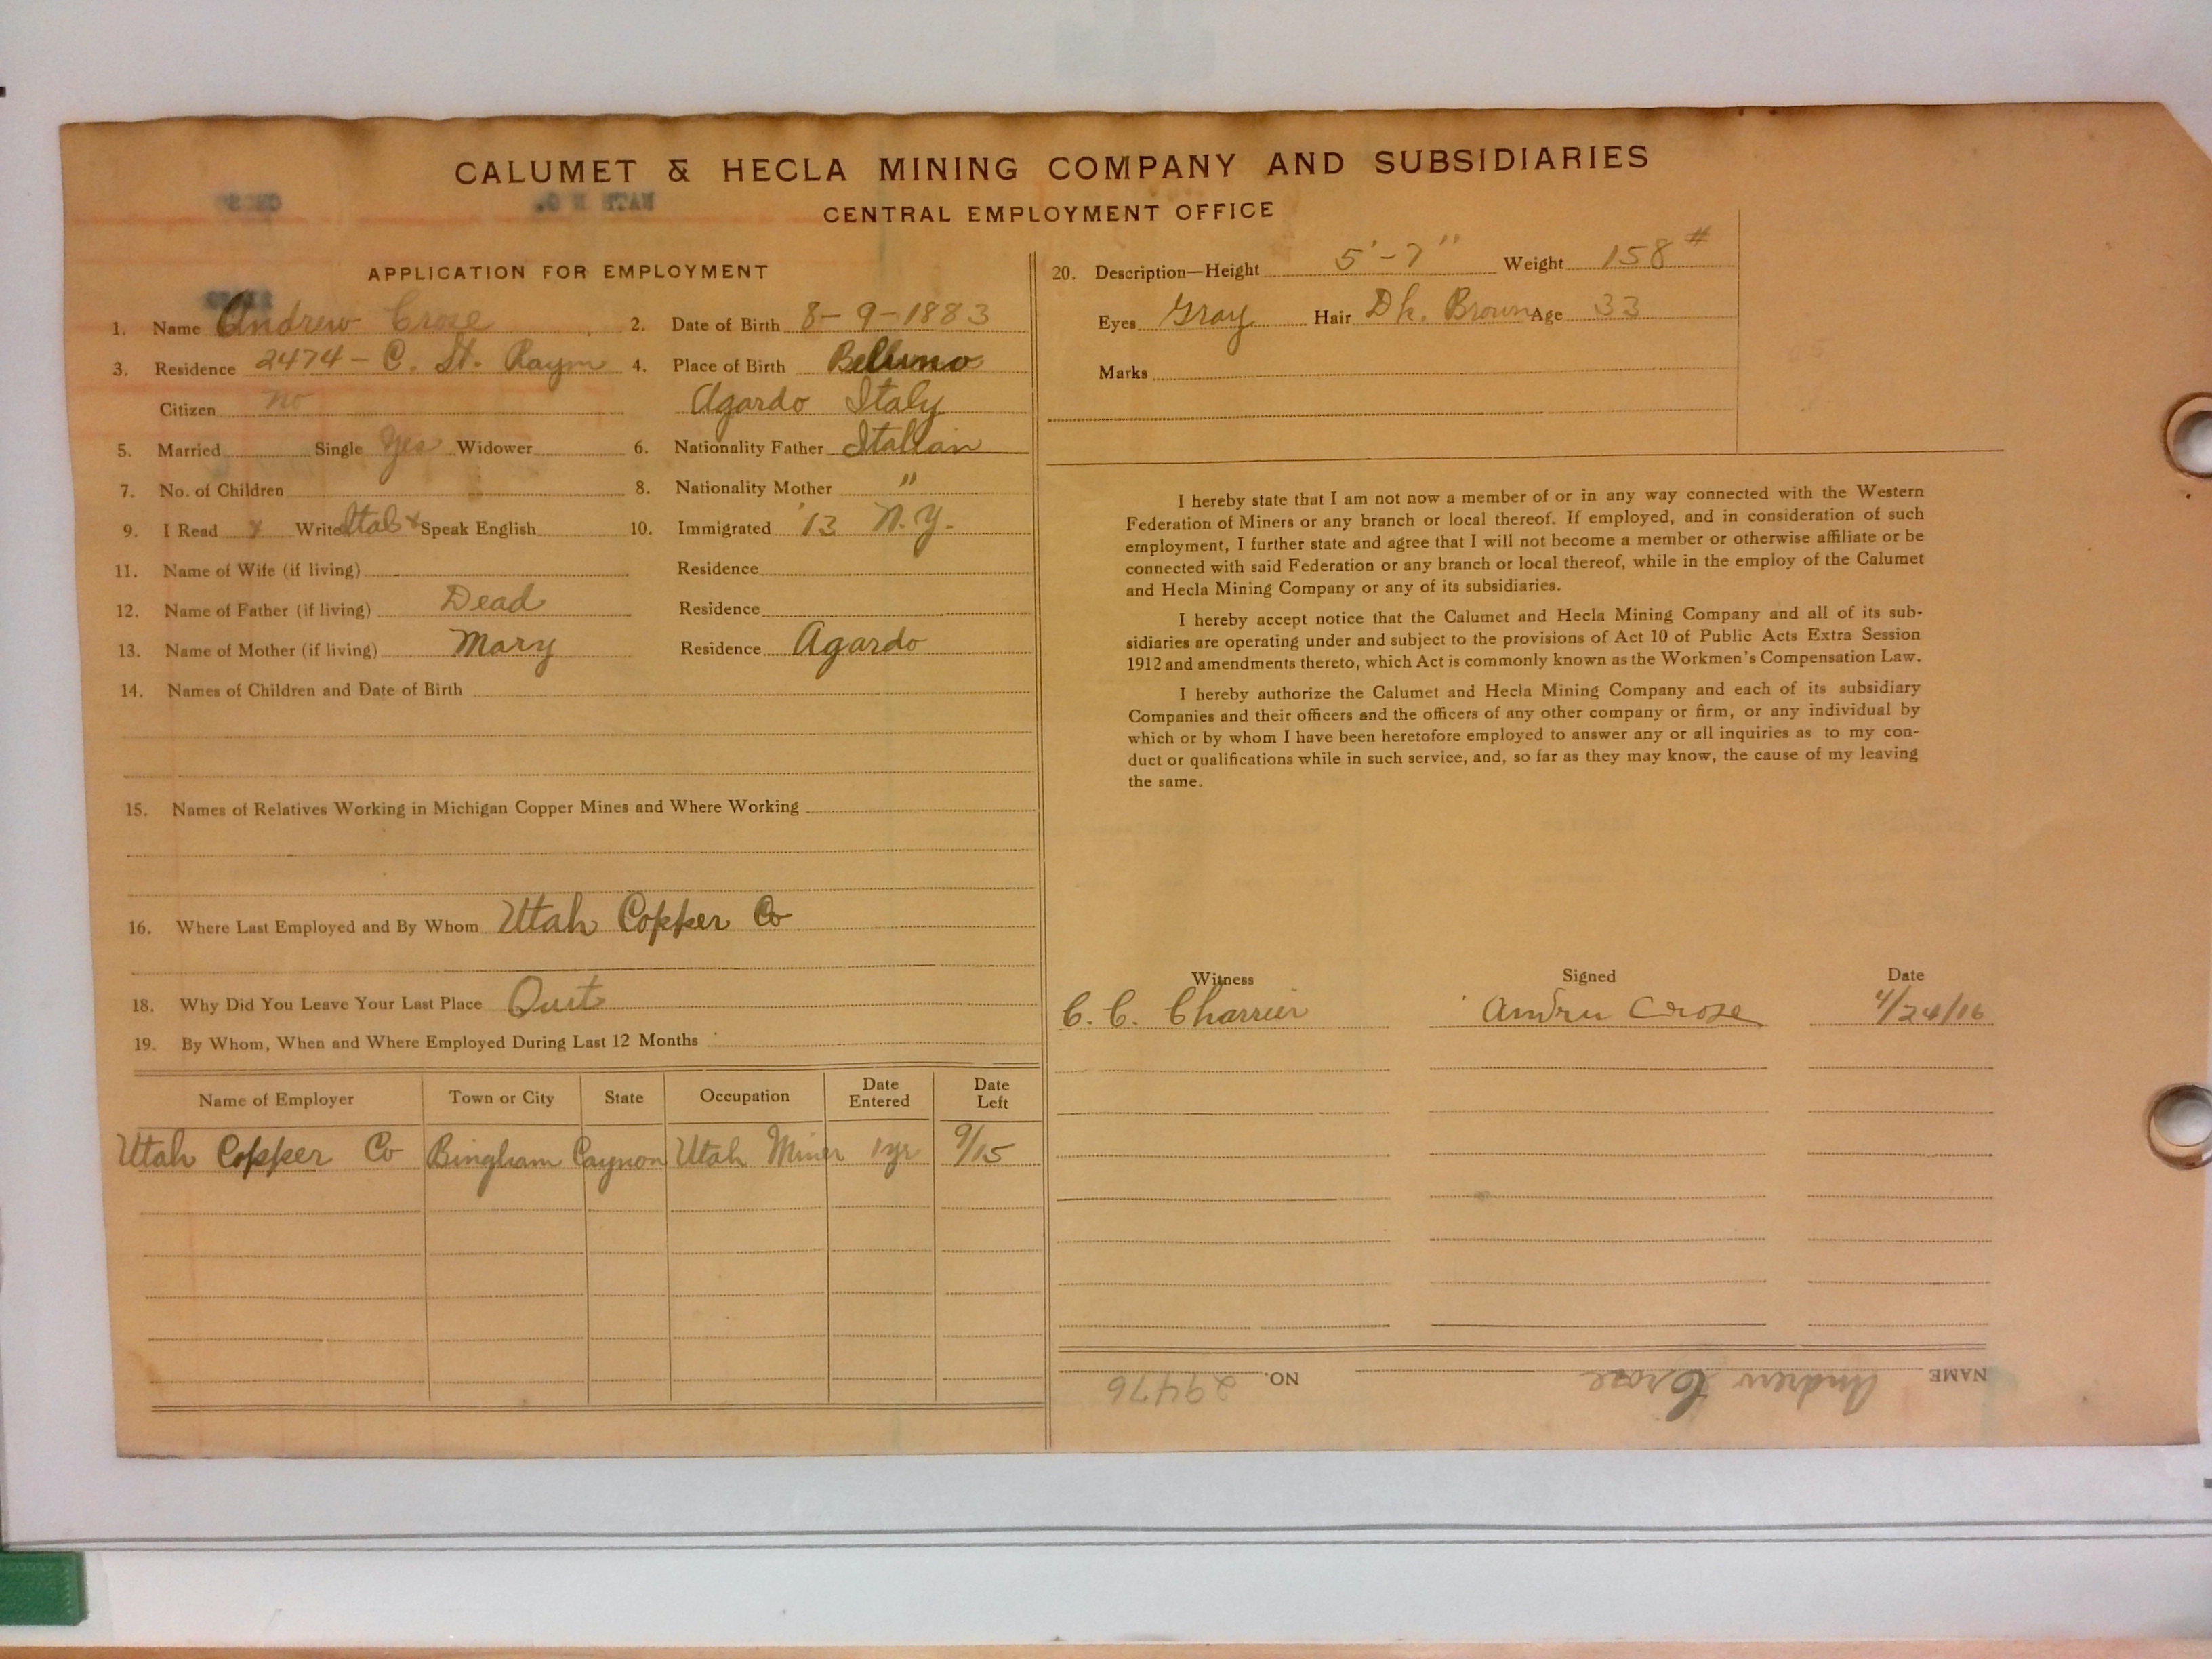 CALUMET & HECLA MINING COMPANY AND SUBSIDIARIES
CENTRAL EMPLOYMENT OFFICE
APPLICATION FOR EMPLOYMENT
1. Name Andrew Croze 2. Date of Birth 8-9-1883
3. Residence 2474- C. St. Raym 4. Place of Birth Belluno
Citizen no Agardo Italy
5. Married Single Yes Widower 6. Nationality Father Italian
7. No. of Children 8. Nationality Mother "
9. I Read Write Ital Speak English 10. Immigrated '13 N.Y.
11. Name of Wife (if living) Residence
12. Name of Father (if living) Dead Residence
13. Name of Mother (if living) Mary Residence Agardo
14. Names of Children and Date of Birth
15. Names of Relatives Working in Michigan Copper Mines and Where Working
16. Where Last Employed and By Whom Utah Copper Co
18. Why Did You Leave Your Last Place Quit
19. By Whom, When and Where Employed During Last 12 Months
Name of Employer Town or City State Occupation Date Entered Date Left
Utah Copper Co Bingham Caynon Utah Miner 1 yr 9/15
20. Description—Height 5'-7" Weight 158#
Eyes Gray Hair Dk. Brown Age 33
Marks
I hereby state that I am not now a member of or in any way connected with the Western
Federation of Miners or any branch or local thereof. If employed, and in consideration of such
employment, I further state and agree that I will not become a member or otherwise affiliate or be
connected with said Federation or any branch or local thereof, while in the employ of the Calumet
and Hecla Mining Company or any of its subsidiaries.
I hereby accept notice that the Calumet and Hecla Mining Company and all of its sub-
sidiaries are operating under and subject to the provisions of Act 10 of Public Acts Extra Session
1912 and amendments thereto, which Act is commonly known as the Workmen's Compensation Law.
I hereby authorize the Calumet and Hecla Mining Company and each of its subsidiary
Companies and their officers and the officers of any other company or firm, or any individual by
which or by whom I have been heretofore employed to answer any or all inquiries as to my con-
duct or qualifications while in such service, and, so far as they may know, the cause of my leaving
the same.
Witness Signed Date
C. C. Charrier Andru Croze 4/24/16
NAME Andrew Croze NO. 29476